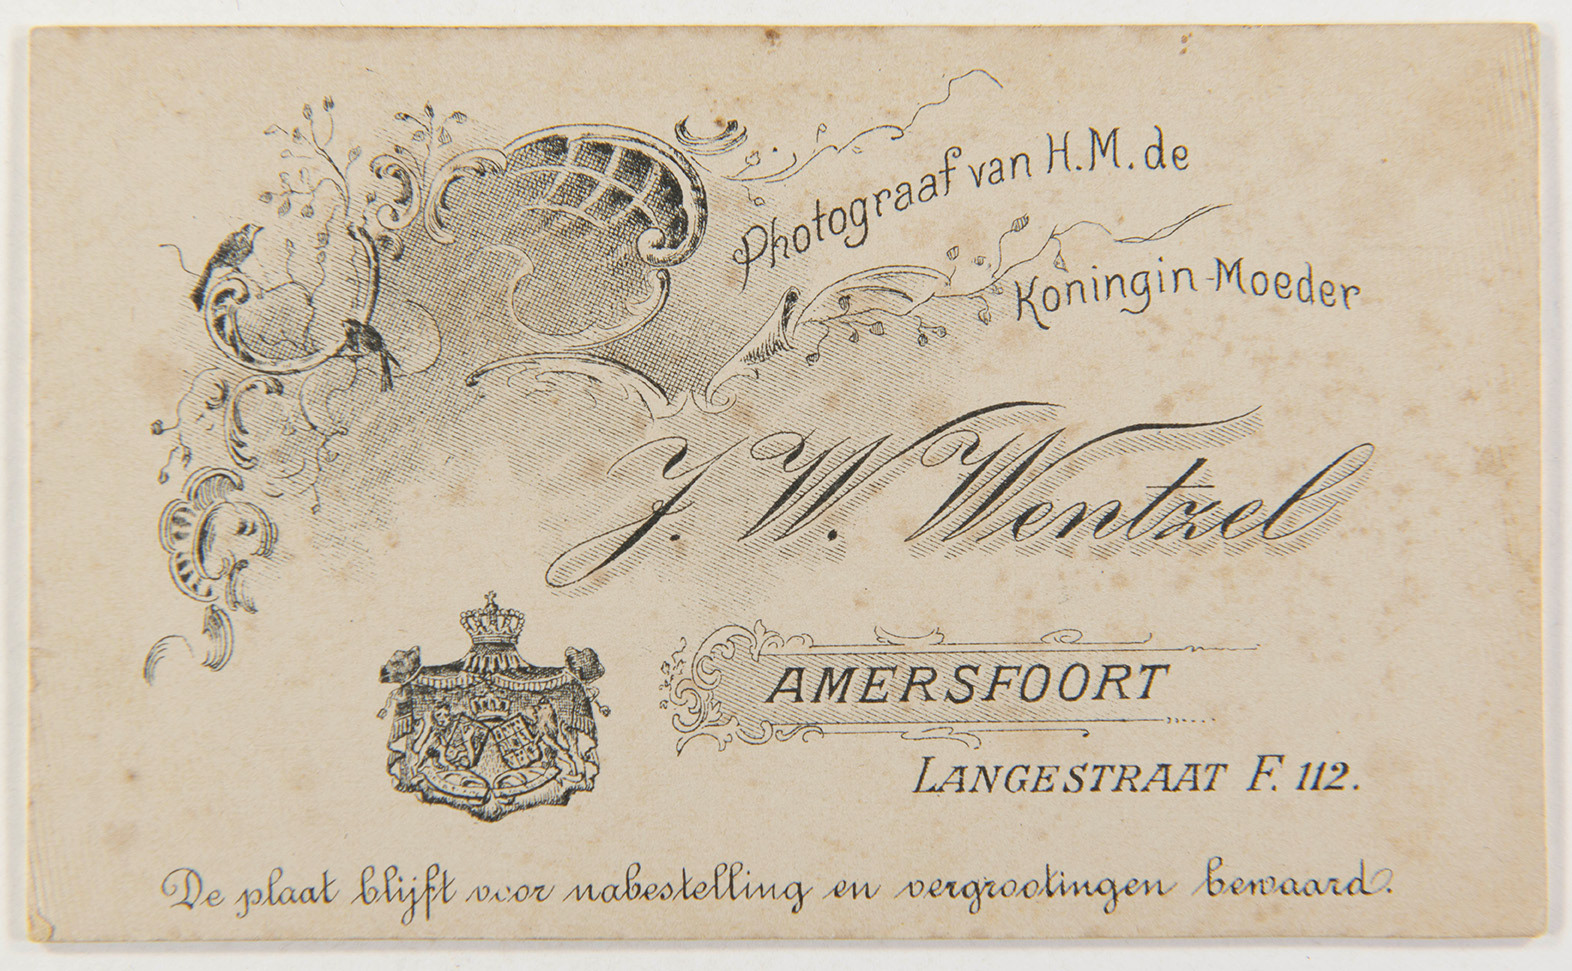 Photograaf van H.M. de
Koningin-Moeder
J. W. Wentzel
AMERSFOORT
LANGESTRAAT F. 112.
De plaat blijft voor nabestelling en vergrootingen bewaard.